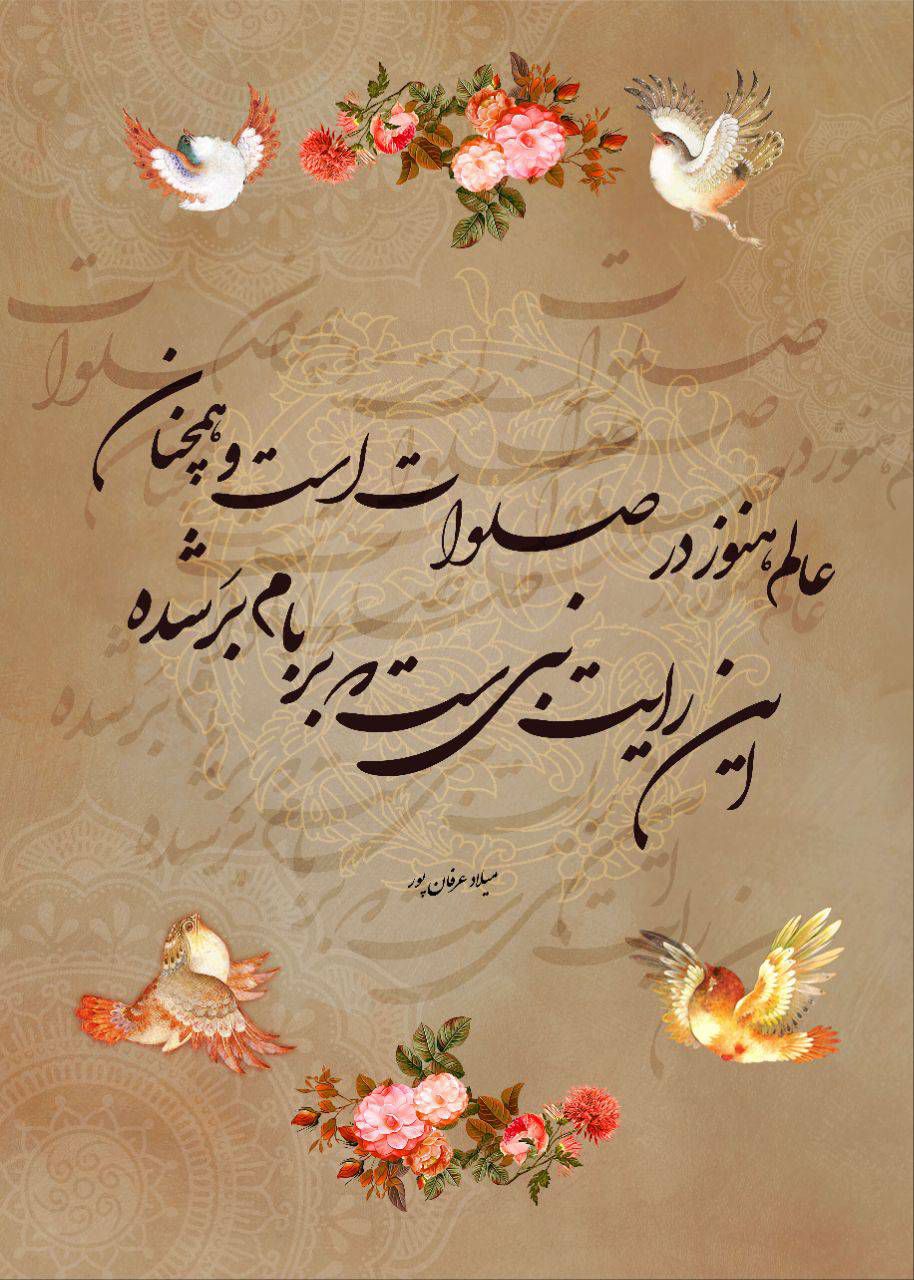 عالم هنوز در صلوات است و همچنان
این رایت نبی ست که بر بام بَر شده
میلاد عرفان پور